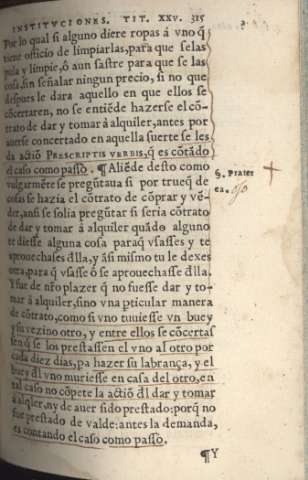 INSTITVCIONES. TIT. XXV. 315
Por lo qual si alguno diere ropas à vno q̃
tiene officio de limpiarlas, para que selas
pula y limpie, ò aun sastre para que se las
cosa, sin señalar ningun precio, si no que
despues le dara aquello en que ellos se
cõcertaren, no se entiẽde hazerse el cõ-
trato de dar y tomar à alquiler, antes por
auerse concertado en aquella suerte se les
da actiõ PRESCRIPTIS VERBIS, q̃ es cõtãdo
el caso como passò. ¶ Aliẽde desto como
vulgarmẽte se pregũtaua si por trueq̃ de
cosas se hazia el cõtrato de cõprar y vẽ-
der, ansi se solia pregũtar si seria cõtrato
de dar y tomar à alquiler quãdo alguno
te diesse alguna cosa paraq̃ vsasses y te
aprouechases dlla, y assi mismo tu le dexes
otra, para q̃ vsasse ò se aprouechasse dlla.
Y fue de nr̃o plazer q̃ no fuesse dar y to-
mar à alquiler, sino vna pticular manera
de cõtrato, como si vno tuuiesse vn buey
y su vezino otro, y entre ellos se cõcertas
sen q̃ se los prestassen el vno al otro por
cada diez dias, pa hazer su labrança, y el
buey dl vno muriesse en casa del otro, en
tal caso no cõpete la actiõ dl dar y tomar
à alq̃ler, ny de auer sido prestado: porq̃ no
fue prestado de valde: antes la demanda,
es contando el caso como passo.
¶Y
§. Præter
ea.